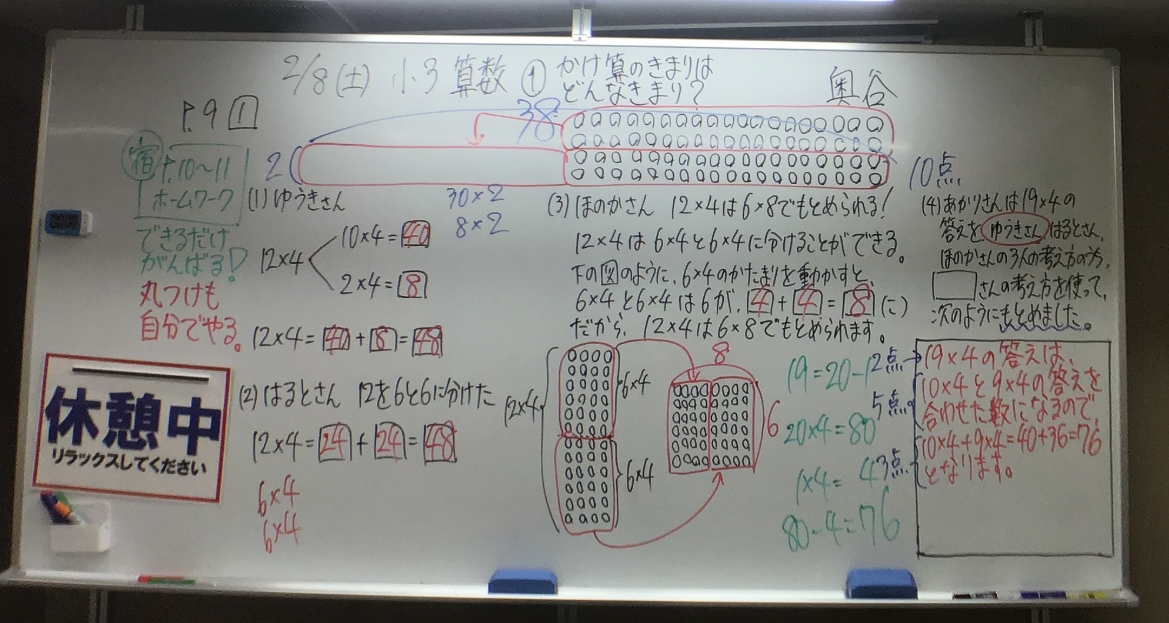 2/8(土) 小3 算数 ① かけ算のきまりは
どんなきまり?
奥谷
P.9 1
38
2
宿 P.10~11
ホームワーク
できるだけ
がんばる!
丸つけも
自分でやる。
休憩中
リラックスしてください
(1) ゆうきさん
30×2
8×2
12×4
10×4=40
2×4=8
12×4=40+8=48
(2) はるとさん 12を6と6に分けた
12×4=24+24=48
6×4
6×4
(3) ほのかさん 12×4は6×8でもとめられる!
12×4は6×4と6×4に分けることができる。
下の図のように、6×4のかたまりを動かすと、
6×4と6×4は6が、4+4=8(こ)
だから、12×4は6×8でもとめられます。
12×4
6×4
6×4
8
6
19=20-1
20×4=80
1×4=4
80-4=76
10点
(4) あかりさんは19×4の
答えを ゆうきさん、はるとさん、
ほのかさんの3人の考え方の内、
さんの考え方を使って、
次のようにもとめました。
2点
5点
3点
19×4の答えは、
10×4と9×4の答えを
合わせた数になるので、
10×4+9×4=40+36=76
となります。